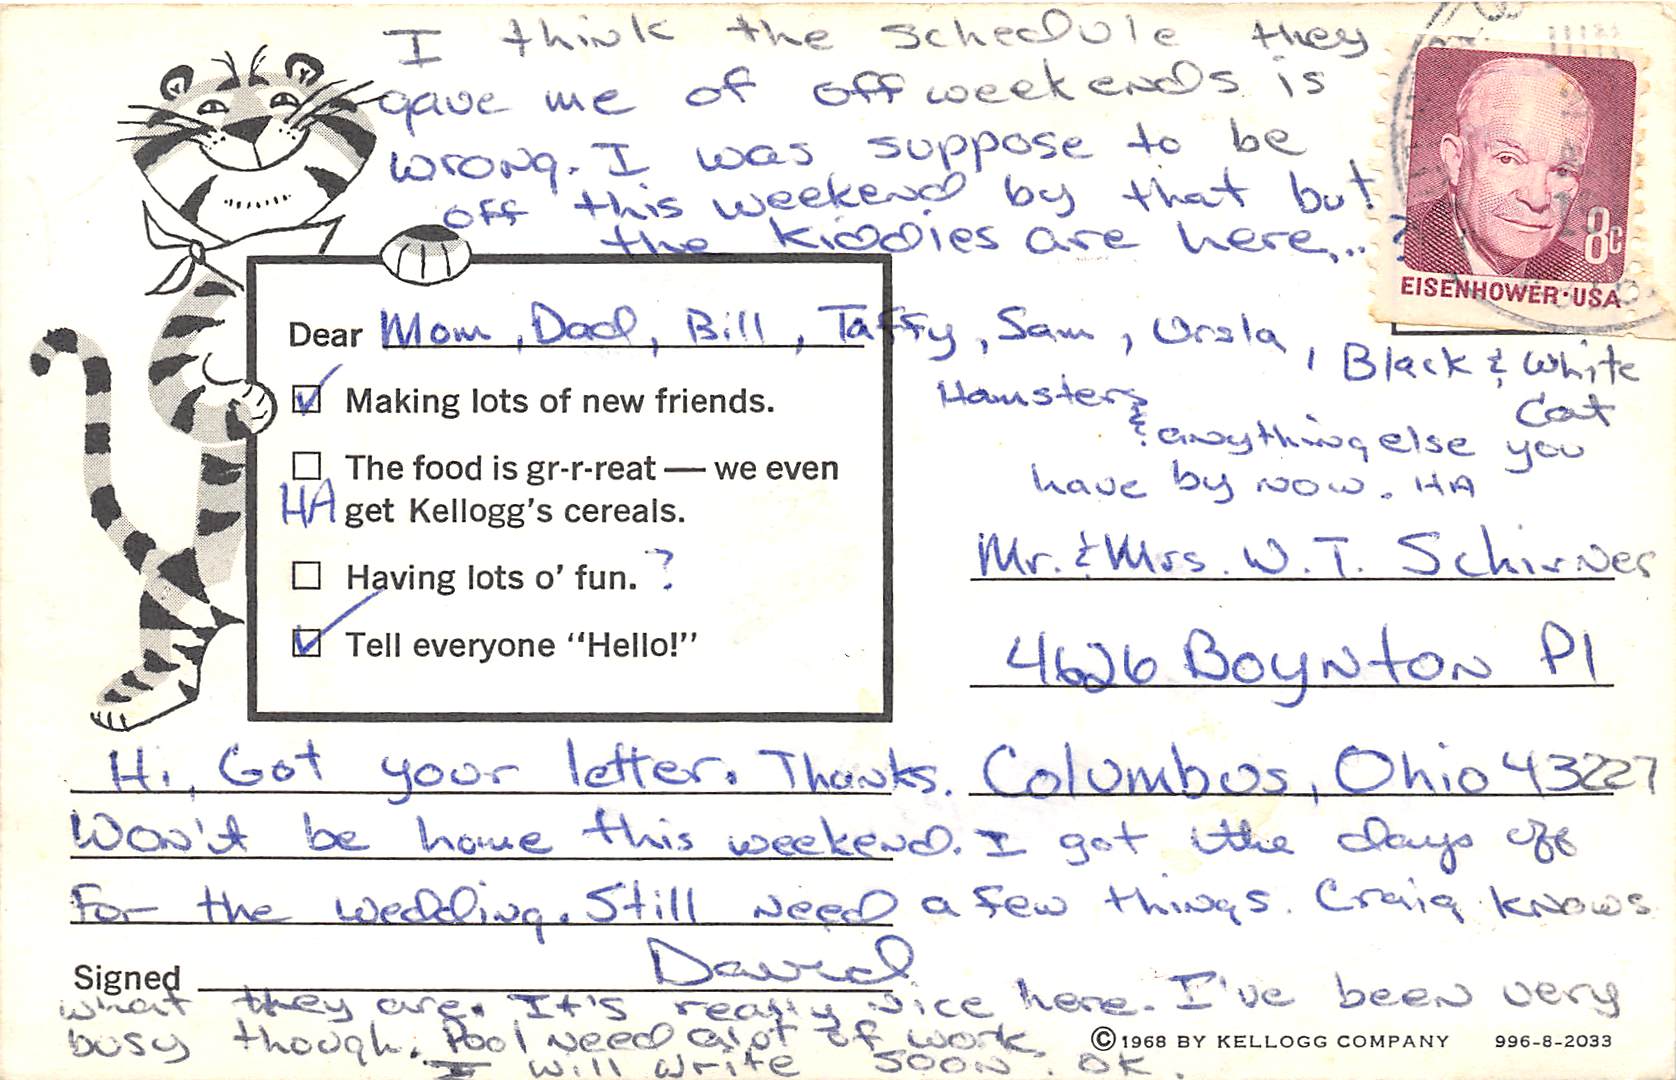 I think the schedule they
gave me of off weekends is
wrong. I was suppose to be
off this weekend by that but
the kiddies are here... ?
8c
EISENHOWER·USA
Dear Mom, Dad, Bill, Taffy, Sam, Ursla, Black & White
Cat
Hamsters
& anything else you
have by now. HA
Making lots of new friends.
The food is gr-r-reat — we even
HA get Kellogg's cereals.
Having lots o' fun. ?
Tell everyone “Hello!”
Mr. & Mrs. W. T. Schirner
4626 Boynton Pl
Columbus, Ohio 43227
Hi, Got your letter. Thanks.
Won't be home this weekend. I got the days off
For the wedding. Still need a few things. Craig knows
Signed David
what they are. It's really nice here. I've been very
busy though. Pool need alot of work.
I will write soon. OK.
©1968 BY KELLOGG COMPANY 996-8-2033